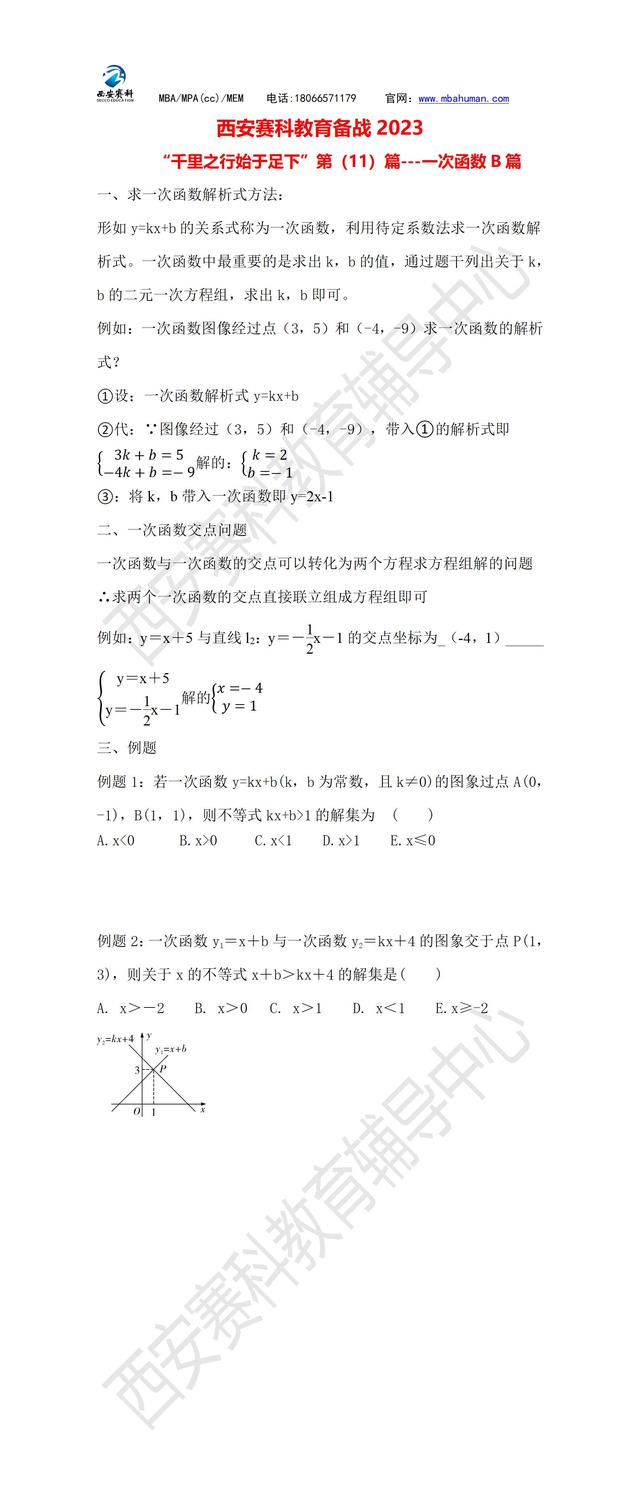 西安赛科
SECCO EDUCATION
MBA/MPA(cc)/MEM 电话:18066571179 官网：www.mbahuman.com
西安赛科教育备战 2023
“千里之行始于足下”第（11）篇---一次函数 B 篇
一、求一次函数解析式方法：
形如 y=kx+b 的关系式称为一次函数，利用待定系数法求一次函数解
析式。一次函数中最重要的是求出 k，b 的值，通过题干列出关于 k，
b 的二元一次方程组，求出 k，b 即可。
例如：一次函数图像经过点（3，5）和（-4，-9）求一次函数的解析
式？
①设：一次函数解析式 y=kx+b
②代：∵图像经过（3，5）和（-4，-9），带入①的解析式即
{3k + b = 5
−4k + b = − 9 解的：{k = 2
b = − 1
③：将 k，b 带入一次函数即 y=2x-1
二、一次函数交点问题
一次函数与一次函数的交点可以转化为两个方程求方程组解的问题
∴求两个一次函数的交点直接联立组成方程组即可
例如：y＝x＋5 与直线 l₂：y＝－1/2x－1 的交点坐标为_（-4，1）_____
{y＝x＋5
y＝－1/2x－1 解的{x = − 4
y = 1
三、例题
例题 1：若一次函数 y=kx+b(k，b 为常数，且 k≠0)的图象过点 A(0，
-1)，B(1，1)，则不等式 kx+b>1 的解集为 （ ）
A.x<0 B.x>0 C.x<1 D.x>1 E.x≤0
例题 2：一次函数 y₁＝x＋b 与一次函数 y₂＝kx＋4 的图象交于点 P(1，
3)，则关于 x 的不等式 x＋b＞kx＋4 的解集是( )
A. x＞－2 B. x＞0 C. x＞1 D. x＜1 E.x≥-2
y₂=kx+4 y
y₁=x+b
3 P
O 1 x
西安赛科教育辅导中心
西安赛科教育辅导中心